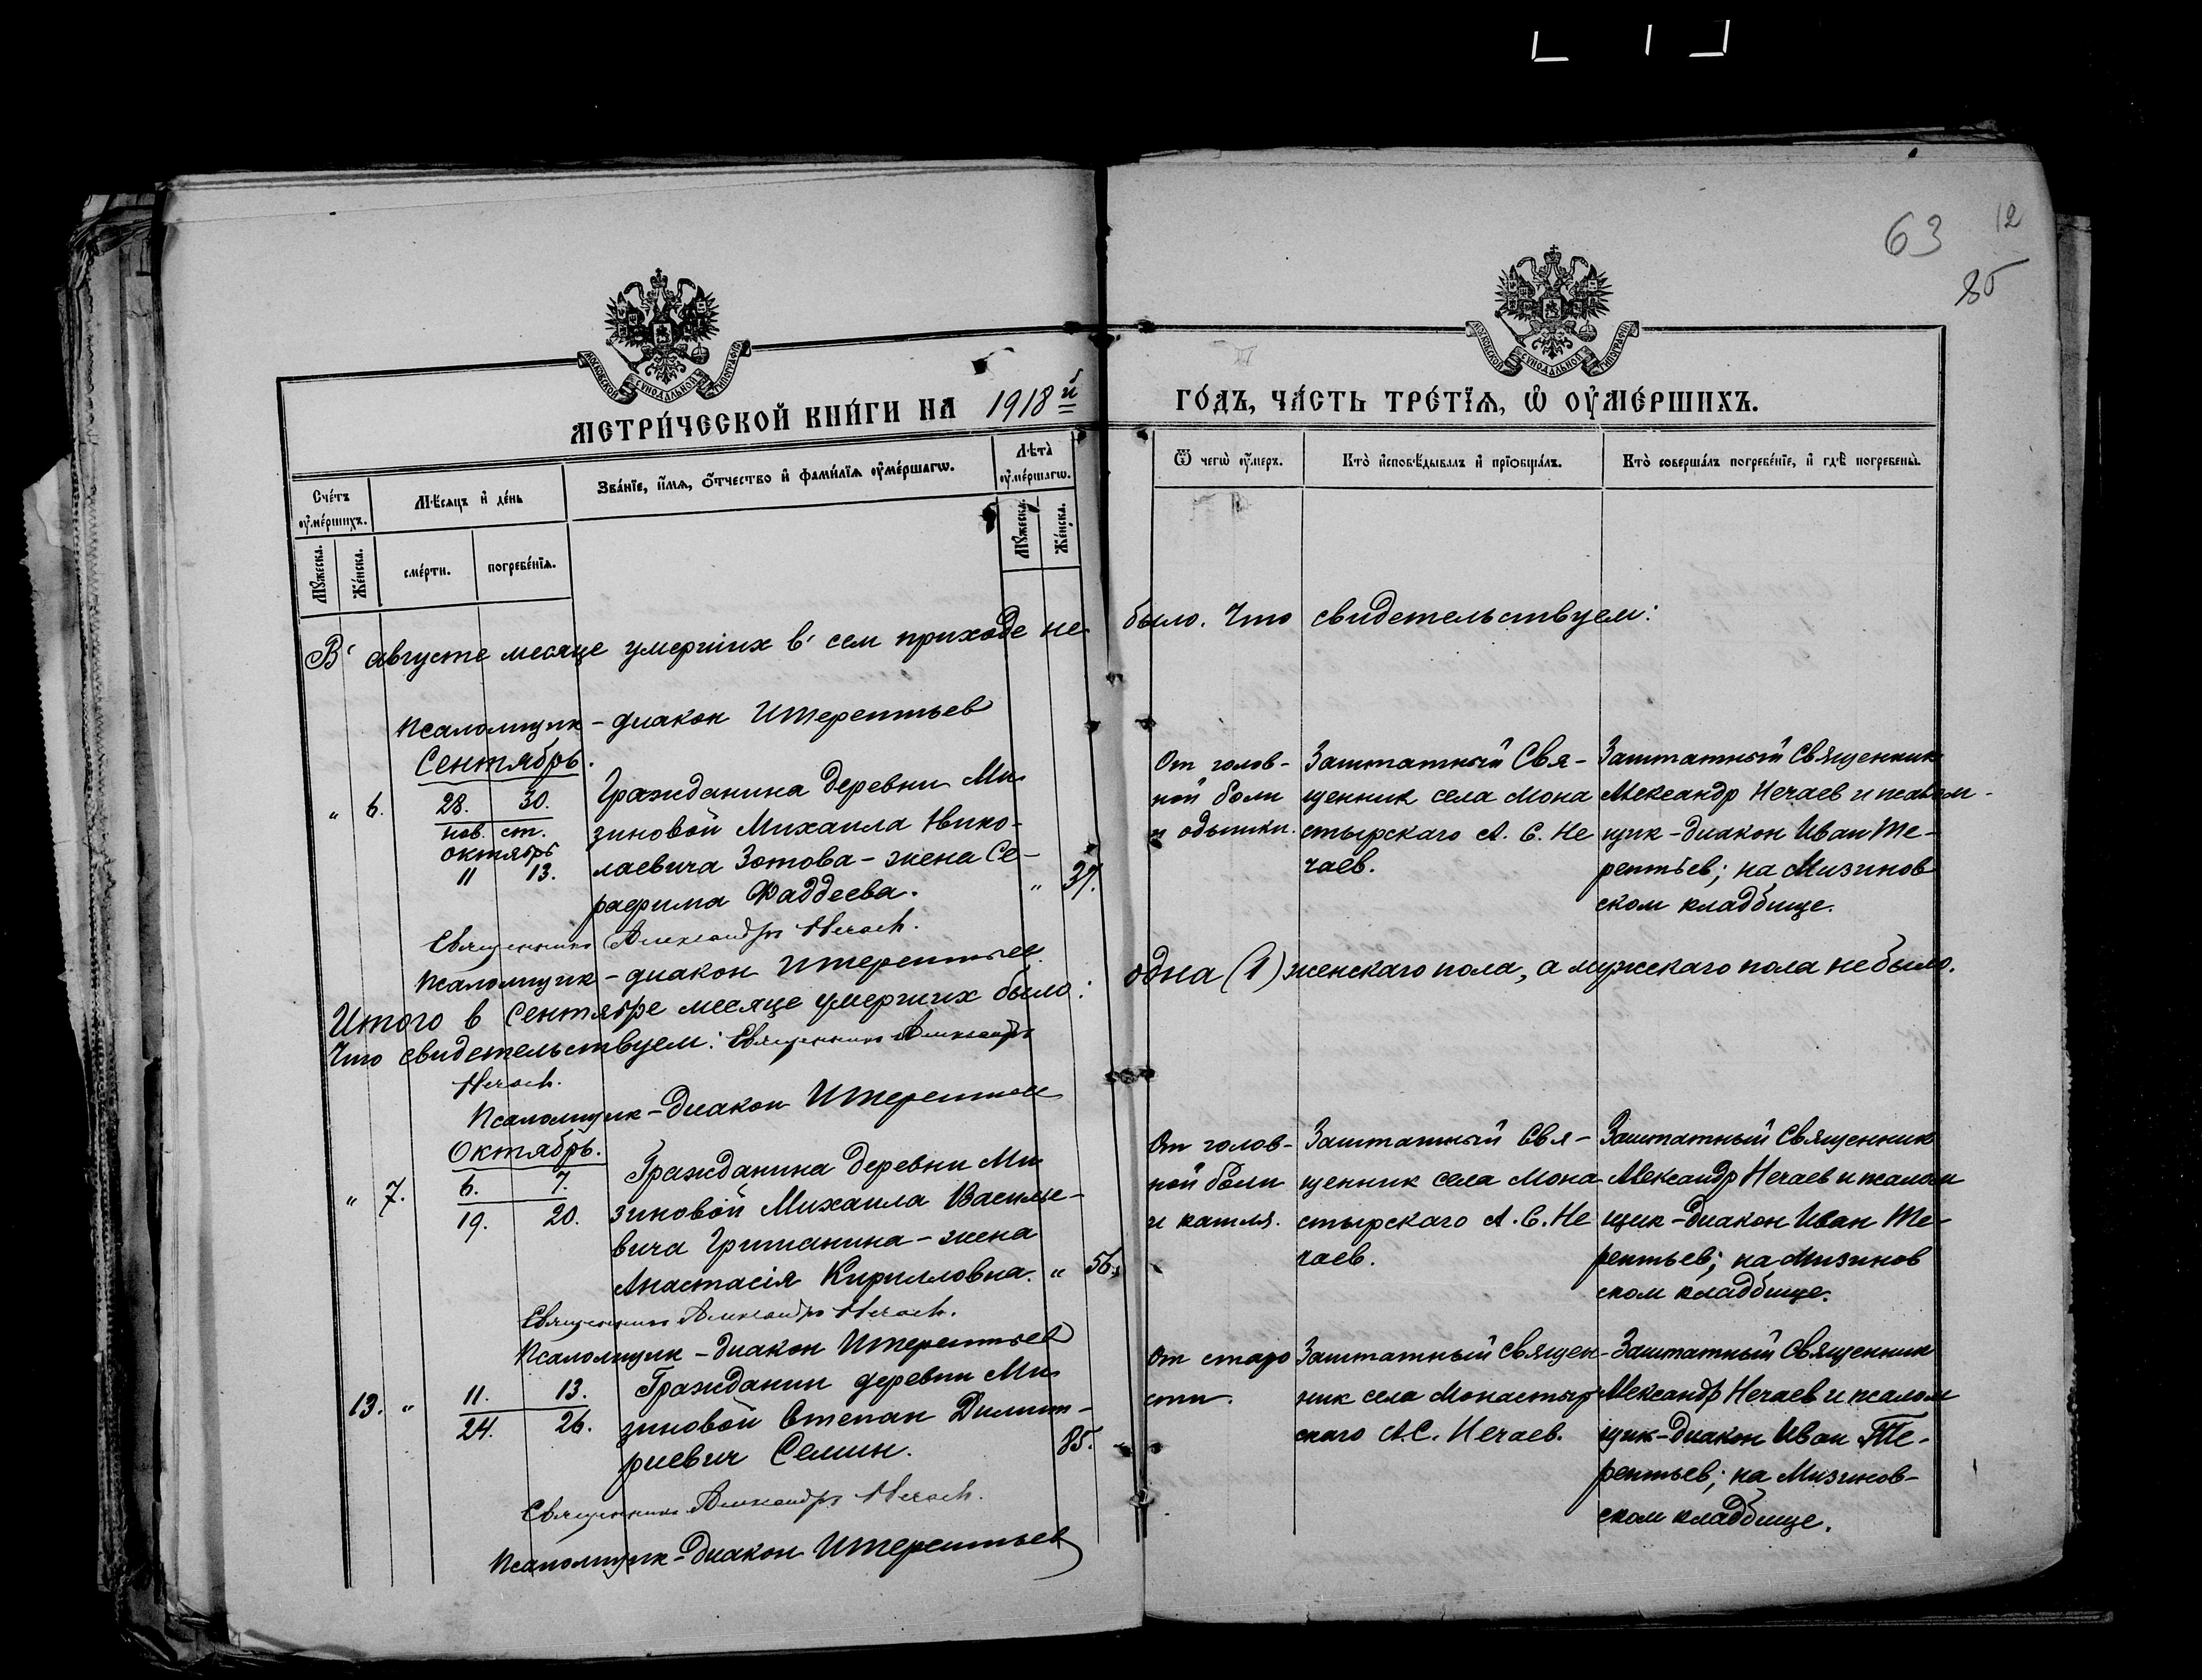 63 12
85
МОСКОВСКОЙ СѴНОДАЛЬНОЙ ТИПОГРАФІИ
МОСКОВСКОЙ СѴНОДАЛЬНОЙ ТИПОГРАФІИ
МЕТРИ́ЧЕСКОЙ КНИ́ГИ НА 1918й ГО́ДЪ, ЧА́СТЬ ТРЕ́ТЇѦ, Ѡ҆ ОУ҆МЕ́РШИХЪ.
Сче́тъ оу҆ме́ршихъ.
Мѣ́сяцъ и҆ де́нь
Зва́нїе, и҆́мѧ, ѻ҆́тчество и҆ фами́лїѧ оу҆ме́ршагѡ.
Лѣ́та оу҆ме́ршагѡ.
Ѿ чегѡ̀ оу҆́меръ.
Кто̀ и҆сповѣ́дывалъ и҆ прїѡбща́лъ.
Кто̀ соверша́лъ погребе́нїе, и҆ гдѣ̀ погребены̀.
Мꙋ́жеска.
Же́нска.
сме́рти.
погребе́нїѧ.
Мꙋ́жеска.
Же́нска.
В августе месяце умерших в сем приходе не было. Что свидетельствуем:
Псаломщик-диакон ИТерентьев
Сентябрь.
" 6. 28. 30.
нов. ст.
октябрь
11 13.
Гражданина деревни Ми
зиновой Михаила Нико-
лаевича Зотова - жена Се-
рафима Фаддеева. " 37.
От голов-
ной боли
и одышки.
Заштатный Свя-
щенник села Мона
стырскаго А. С. Не
чаев.
Заштатный Священник
Александр Нечаев и псалом-
щик-диакон Иван Те-
рентьев; на Мизинов
ском кладбище.
Священник Александр Нечаев.
Псаломщик-диакон ИТерентьев.
Итого в Сентябре месяце умерших было: одна (1) женскаго пола, а мужскаго пола не было.
Что свидетельствуем: Священник Александр
Нечаев.
Псаломщик-Диакон ИТерентьев
Октябрь.
" 7. 6. 7.
19. 20.
Гражданина деревни Ми
зиновой Михаила Василье-
вича Гришанина - жена
Анастасія Кирилловна. " 56.
От голов-
ной боли
и кашля.
Заштатный Свя-
щенник села Мона
стырскаго А. С. Не
чаев.
Заштатный Священник
Александр Нечаев и псалом
щик-диакон Иван Те-
рентьев; на Мизинов
ском кладбище.
Священник Александр Нечаев.
Псаломщик-диакон ИТерентьев
13. " 11. 13.
24. 26.
Гражданин деревни Ми
зиновой Степан Димит-
риевич Семин. 85.
От старо
сти.
Заштатный Священ-
ник села Монастыр
скаго А.С. Нечаев.
Заштатный Священник
Александр Нечаев и псалом
щик-диакон Иван Те-
рентьев; на Мизинов-
ском кладбище.
Священник Александр Нечаев.
Псаломщик-Диакон ИТерентьев